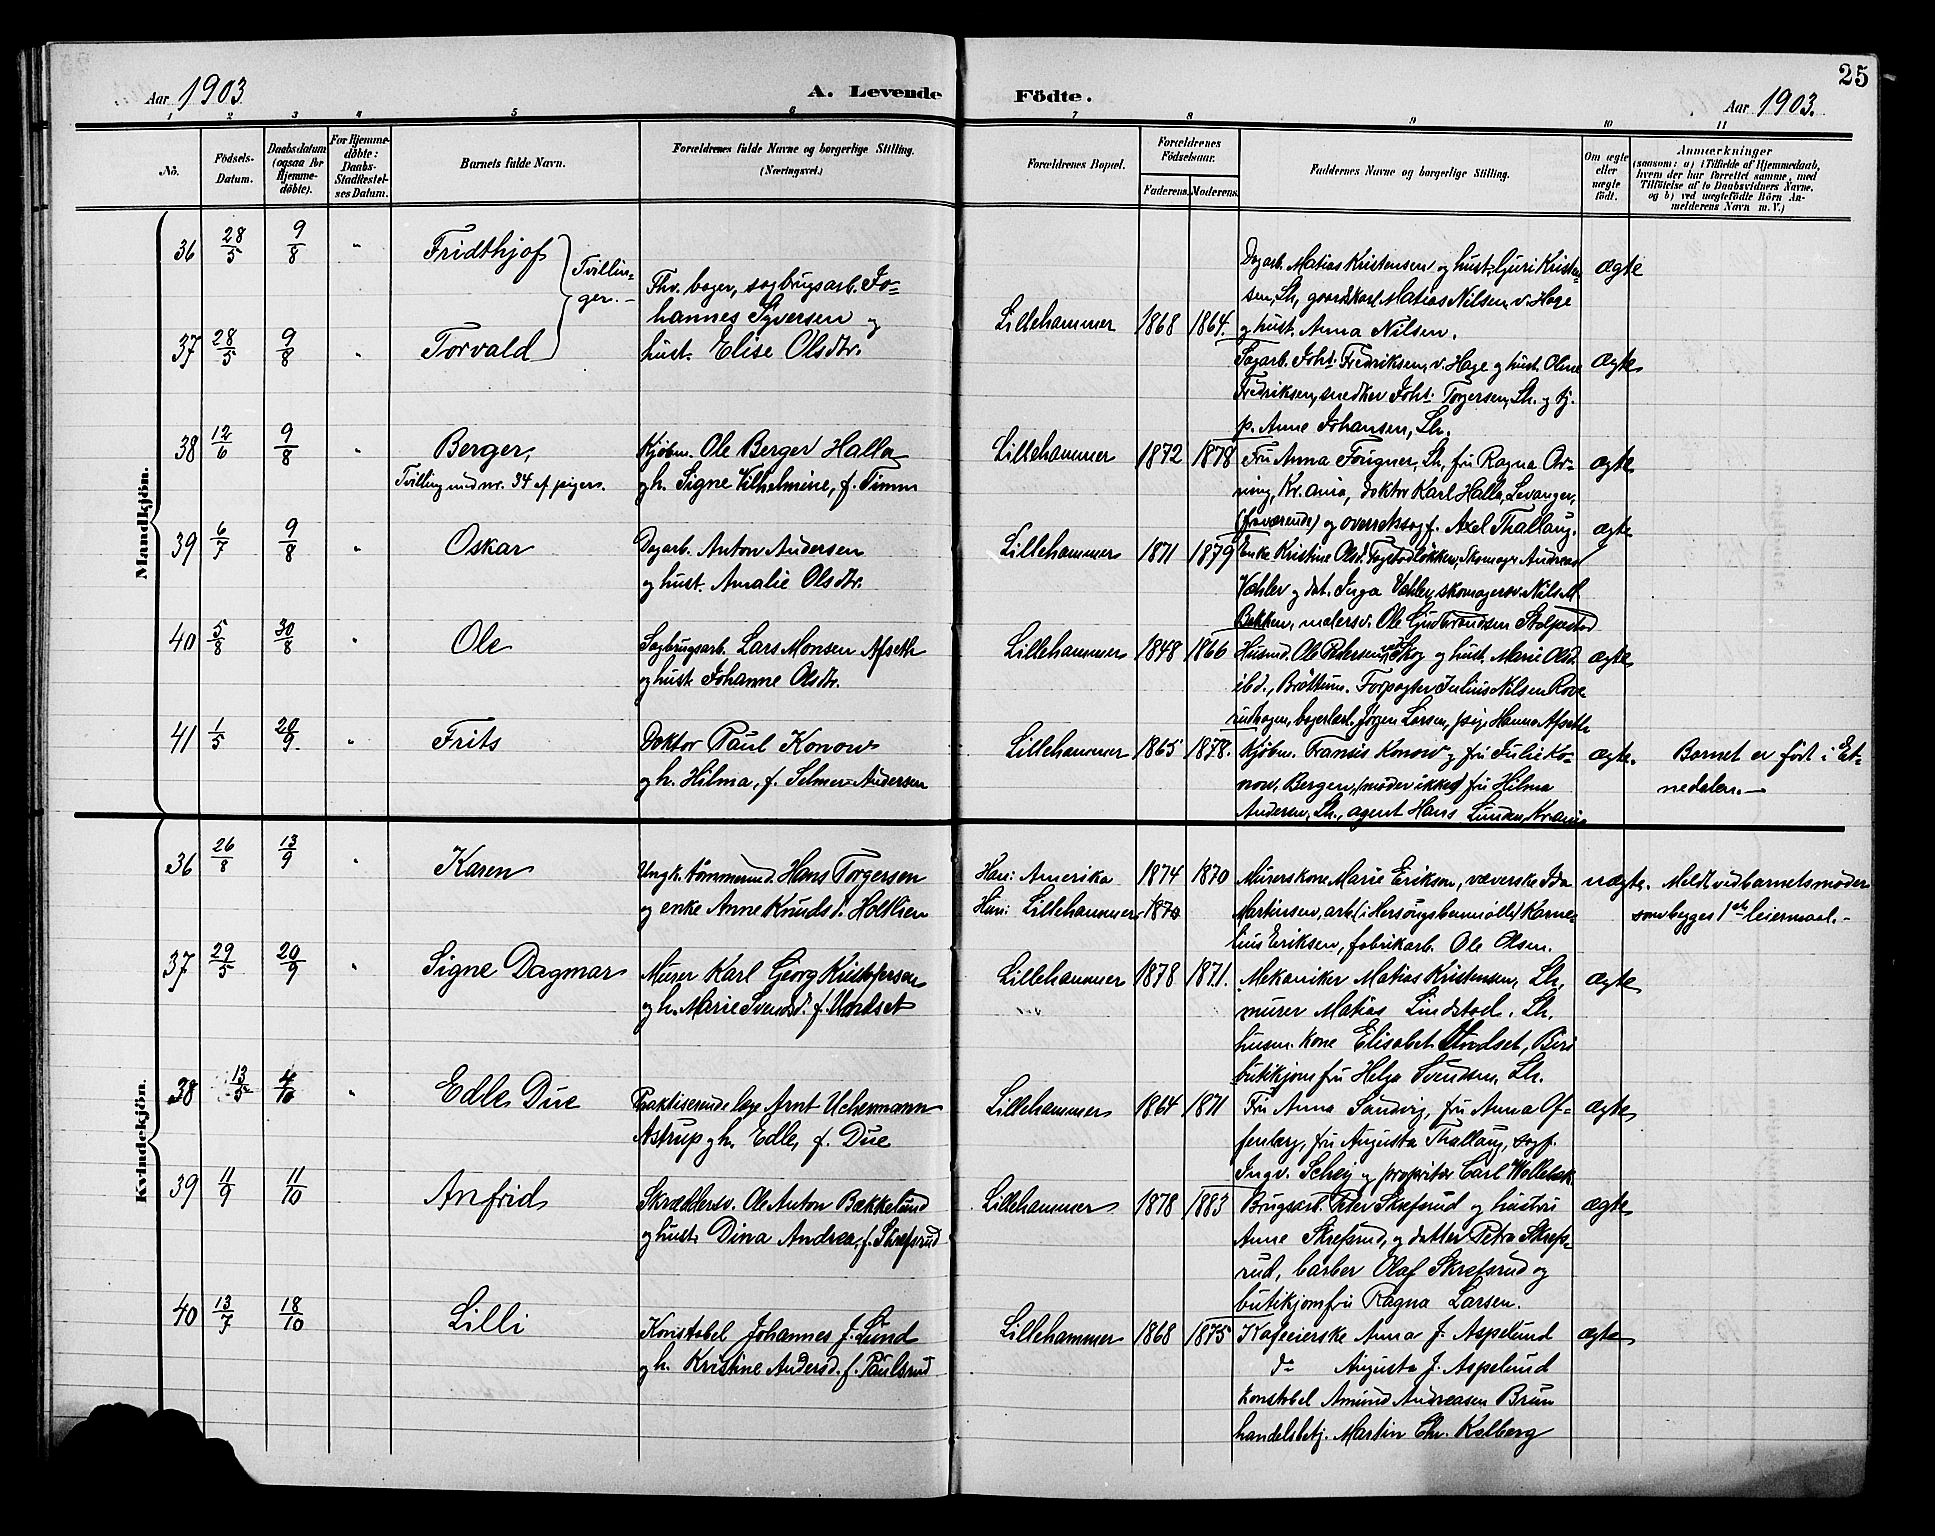 25
Aar 1903
A. Levende Födte.
Aar 1903.
1 2 3 4 5 6 7 8 9 10 11
No.
Födsels-
Datum.
Daabsdatum
(ogsaa for
Hjemme-
døbte).
For Hjemme-
døbte:
Daabs-
Stadfæstel-
ses Datum.
Barnets fulde Navn.
Forældrenes fulde Navne og borgerlige Stilling.
(Næringsvei.)
Forældrenes Bopæl.
Forældrenes
Födselsaar.
Faderens. Moderens.
Faddernes Navne og borgerlige Stilling.
Om ægte
eller
uægte
födt.
Anmærkninger
(saasom: a) i Tilfælde af Hjemmedaab,
hvem der har forrettet samme, med
Tilføielse af to Daabsvidners Navne.
og b) ved uægtefödte Börn An-
melderens Navn m. V.)
Mandkjön.
36 28/5 9/8 " Fridthjof
Tvillin-
ger.-
Thv. bager, sagbrugsarb. Jo-
hannes Syversen og
Lillehammer 1868 1864.
Dagarb. Matias Kristensen og hust. Guri Kristen-
sen, Lh, gaardskarl Matias Nilsen v. Hage
og hust. Anna Nilsen.
ægte
37 28/5 9/8 " Torvald
hust. Elise Olsdtr.
Sagarb. Johs. Fredriksen, v. Hage og hust. Oline
Fredriksen, snedker Johs. Torgersen, Lh. og tj.
p. Anne Johansen, Lh.
ægte
38 12/6 9/8 " Berger,
Tvilling med nr. 34 af piger.
Kjøbm. Ole Berger Halla
og h. Signe Vilhelmine, f. Timm
Lillehammer 1872 1878
Fru Anna Fougner, Lh, fru Ragna Or-
ning, Kr.ania, doktor Karl Halla, Levanger,
(fraværende) og overretssagf. Axel Thallaug.
ægte
39 6/7 9/8 " Oskar
Dagarb. Anton Andersen
og hust. Amalie Olsdtr.
Lillehammer 1871 1879
Enke Kristine Olsd. skomager Andreas
Vahlev og dat. Inga Vahlev, skomagersv. Nils M.
Bakken, malersv. Ole Gudbrandsen Stolpestad
ægte
40 5/8 30/8 " Ole
Sagbrugsarb. Lars Monsen Afseth
og hust. Johanne Olsdtr.
Lillehammer 1848 1866
Husmd. Ole Pedersen Skog og hust. Marie Olsd.
ibd., Brøttum. Forpagter Julius Nilsen Rove
rudhagen, bagerlærl. Jørgen Larsen, pige Hanna Afseth
ægte
41 1/5 20/9 " Frits
Doktor Paul Konow
og h. Hilma, f. Selmer-Andersen
Lillehammer 1865 1878.
Kjøbm. Fransis Konow og fru Julie Ko-
now, Bergen, (møder ikke) fru Hilma
Andersen, Lh., agent Hans Lunden, Kr.ania
ægte.
Barnet er født i Et-
nedalen.-
Kvindekjön.
36 26/8 13/9 " Karen
Ungk. tømmermd. Hans Torgersen
og enke Anne Knudsd. Holslien
Han: Amerika
Hun: Lillehammer
1874 1870
1870
Murerskone Marie Eriksen, væverske Ida
Martinsen, arb. (i Mesnas) Karne-
lius Eriksen, fabrikarb. Ole Olsen.
uægte.
Meldt ved barnets moder
som begges 1ste leiermaal.-
37 29/5 20/9 " Signe Dagmar
Murer Karl Georg Kristofersen
og h. Marie Svendsd. f. Undset
Lillehammer 1878 1871.
Mekaniker Matias Kristensen, Lh,
murer Matias Lindstad, Lh.
husm. kone Elisabet Undset, Biri
butikjomfru Helga Svendsen, Lh.
ægte
38 13/5 4/10 " Edle Due
Praktiserende læge Arnt Uchermann
Astrup og h. Edle, f. Due
Lillehammer 1864 1871
Fru Anna Sandvig, fru Anna Of-
fenberg, fru Augusta Thallaug, sagf.
Ingv. Schej og propritær Carl Wollebæk
ægte
39 11/9 11/10 Anfrid
Skræddersv. Ole Anton Bækkelund
og hust. Dina Andrea, f. Skrefsrud
Lillehammer 1878 1883
Brugsarb. Peter Skrefsrud og hustru
Anne Skrefsrud, og datter Petra Skrefs-
rud, barber Olaf Skrefsrud og
butikjomfru Ragna Larsen.
ægte
40 13/7 18/10 Lilli
Konstabel Johannes J. Lund
og h. Kristine Andersd. f. Paulsrud
Lillehammer 1868 1875
Kafeeierske Anna J. Aspelund
do Augusta J. Aspelund
konstabel Amund Andreasen Bruun
handelsbetj. Martin Chr. Kalberg
ægte